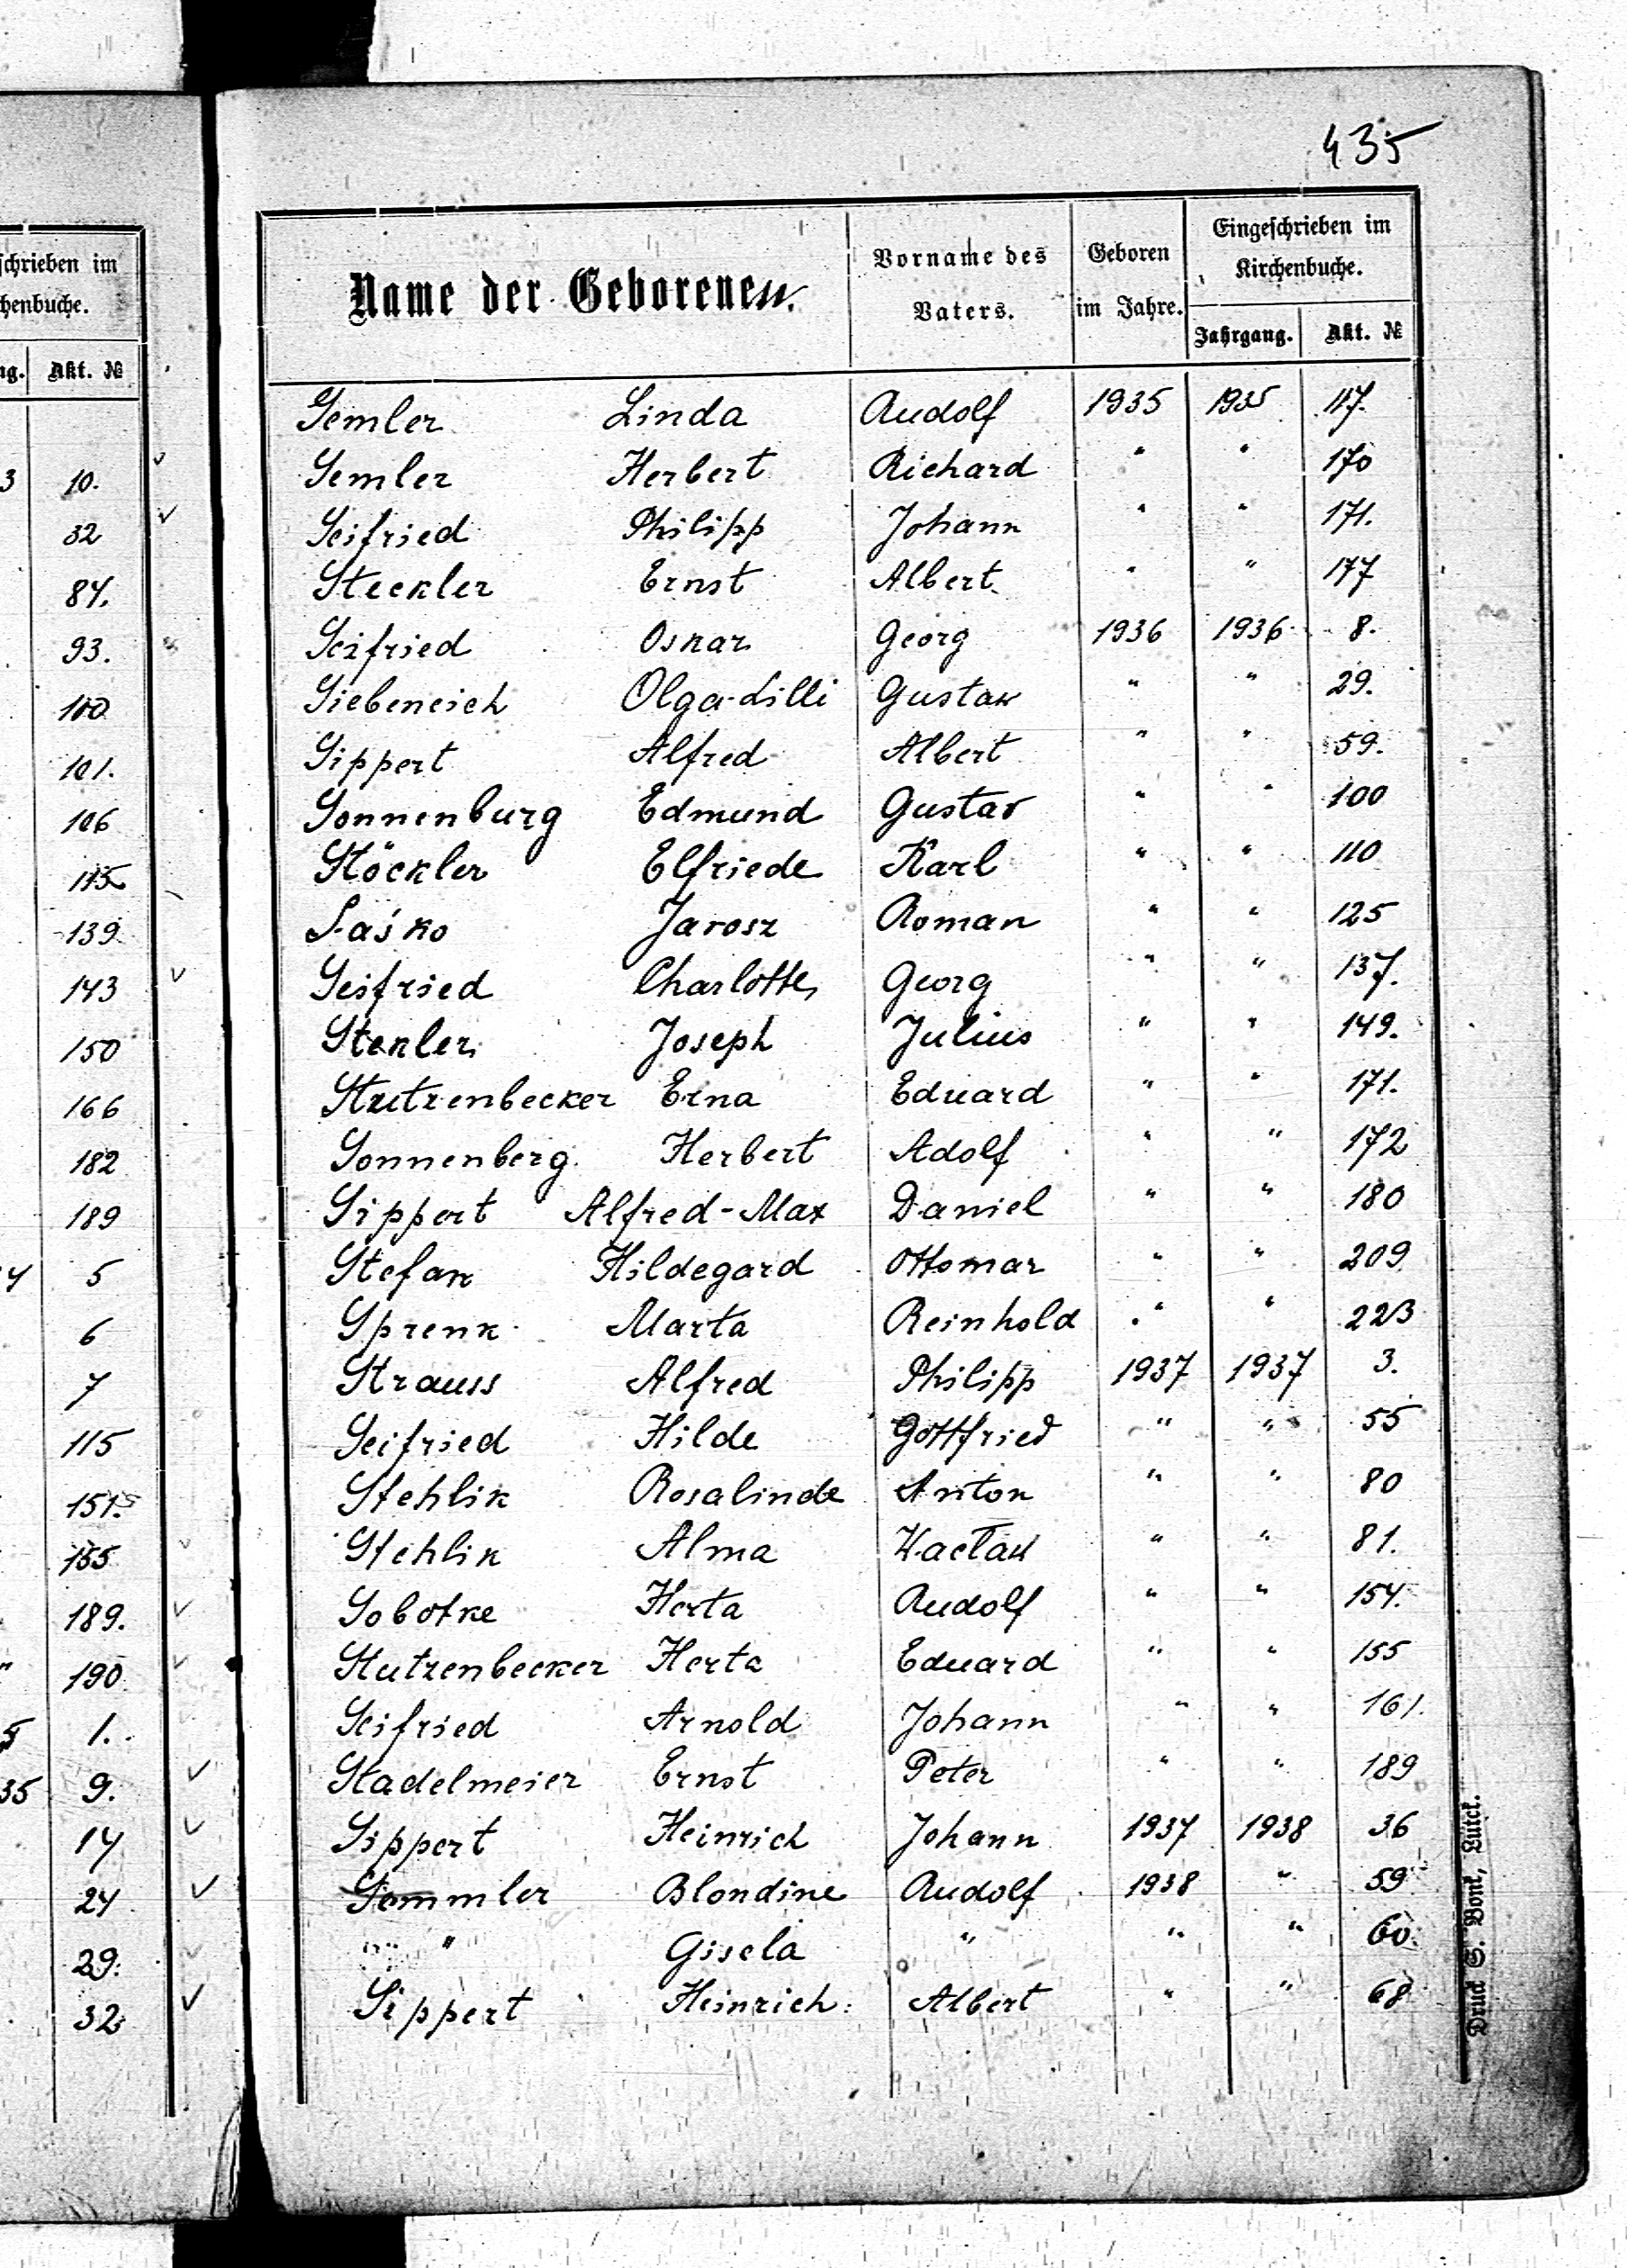 435
schrieben im
chenbuche.
ng. Akt. №
3 10.
32
84.
93.
100
101.
106
115
139
143
150
166
182
189
4 5
6
7
115
151.
155
189.
" 190
5 1.
35 9.
14
24
29.
32
Name der Geborenen.
Vorname des Vaters.
Geboren im Jahre.
Eingeschrieben im Kirchenbuche.
Jahrgang. Akt. №
Semler Linda Rudolf 1935 1935 117.
Semler Herbert Richard " " 170
Seifried Philipp Johann " " 171.
Steckler Ernst Albert " " 177
Seifried Oskar Georg 1936 1936 8.
Siebeneich Olga-Lilli Gustaw " " 29.
Sippert Alfred Albert " " 59.
Sonnenburg Edmund Gustav " " 100
Stöckler Elfriede Karl " " 110
Saśko Jarosz Roman " " 125
Seifried Charlotte Georg " " 137.
Stekler Joseph Julius " " 149.
Stutzenbecker Erna Eduard " " 171.
Sonnenberg Herbert Adolf " " 172
Sippert Alfred-Max Daniel " " 180
Stefan Hildegard Ottomar " " 209
Sprenk Marta Reinhold " " 223
Strauss Alfred Philipp 1937 1937 3.
Seifried Hilde Gottfried " " 55
Stehlik Rosalinde Anton " " 80
Stehlik Alma Wacław " " 81.
Sobotke Herta Rudolf " " 154.
Stutzenbecker Herta Eduard " " 155
Seifried Arnold Johann " " 161.
Stadelmeier Ernst Peter " " 189
Sippert Heinrich Johann 1937 1938 36
Semmler Blondine Rudolf 1938 " 59
" " Gisela " " " 60.
Sippert Heinrich Albert " " 68
Druck S. Bonk, Luck.